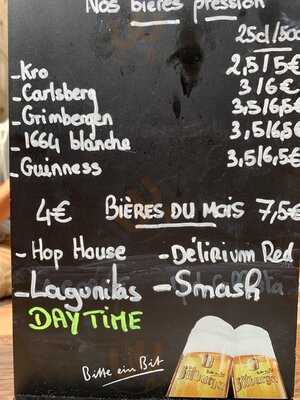 Nos bières pression
25cl/50c
_Kro 2,5/5€
_Carlsberg 3/6€
_Grimbergen 3,5/6,5€
_1664 blanche 3,5/6,5€
_Guinness 3,5/6,5€
4€ BIÈRES DU MOIS 7,5€
- Hop House - Délirium Red
- Lagunitas - Smash
DAYTIME
Bitte ein Bit
Bitburger